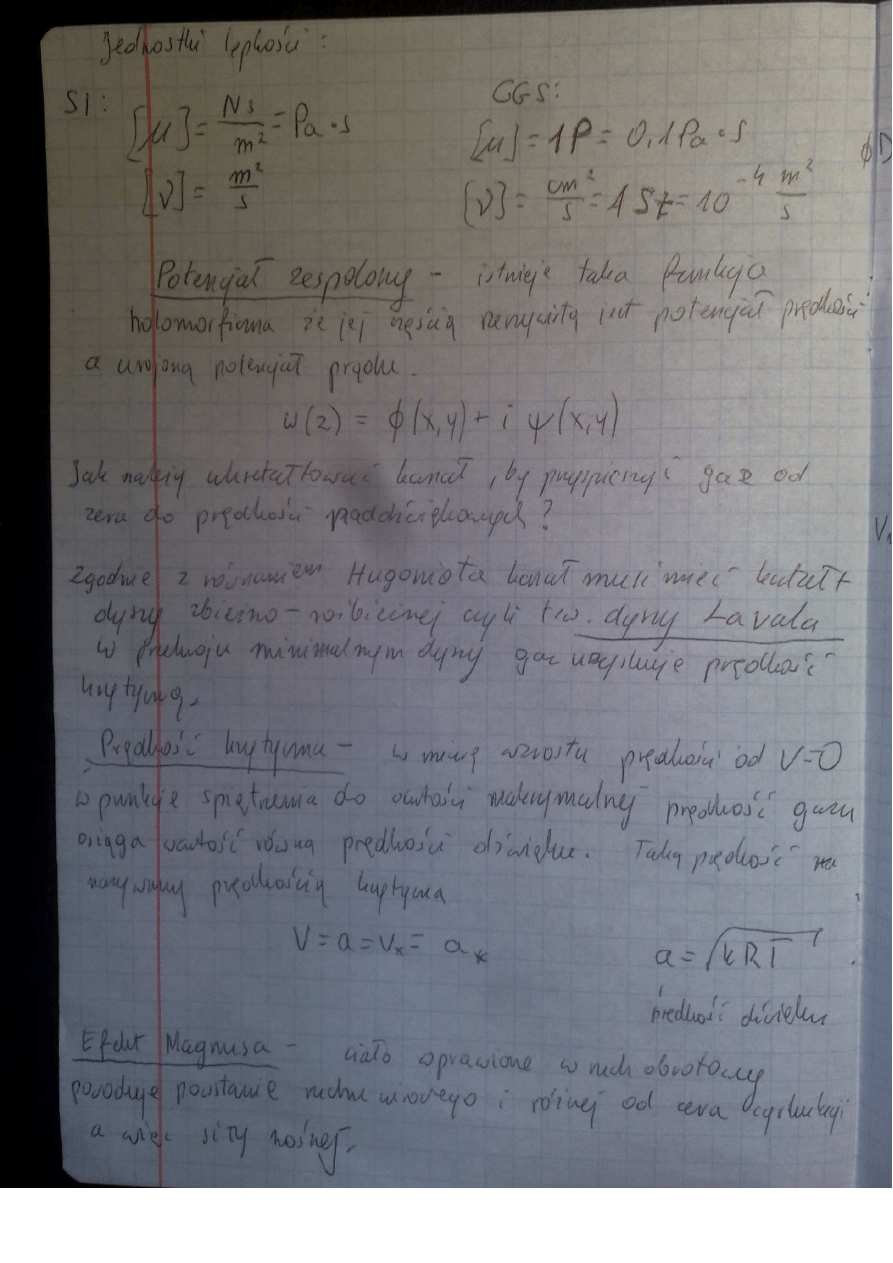 Jednostki lepkości:
SI: [μ] = Ns/m² = Pa·s
CGS: [μ] = 1P = 0,1Pa·s
[ν] = m²/s
[ν] = cm²/s = 1 St = 10⁻⁴ m²/s
Potencjał zespolony - istnieje taka funkcja
holomorficzna że jej częścią rzeczywistą jest potencjał prędkości
a urojoną potencjał prądu.
w(z) = φ(x,y) + i ψ(x,y)
Jak należy ukształtować kanał, by przyspieszyć gaz od
zera do prędkości naddźwiękowych?
Zgodnie z równaniem Hugoniota kanał musi mieć kształt
dyszy zbieżno-rozbieżnej czyli tzw. dyszy Lavala
w przekroju minimalnym dyszy gaz uzyskuje prędkość
krytyczną.
Prędkość krytyczna - w miarę wzrostu prędkości od V=0
w punkcie spiętrzenia do wartości maksymalnej prędkość gazu
osiąga wartość równą prędkości dźwięku. Taką prędkość
nazywamy prędkością krytyczną
V = a = v* = a*
a = √kRT
prędkość dźwięku
Efekt Magnusa - ciało wprawione w ruch obrotowy
powoduje powstanie ruchu wirowego i różnej od zera cyrkulacji
a więc siły nośnej.
φD